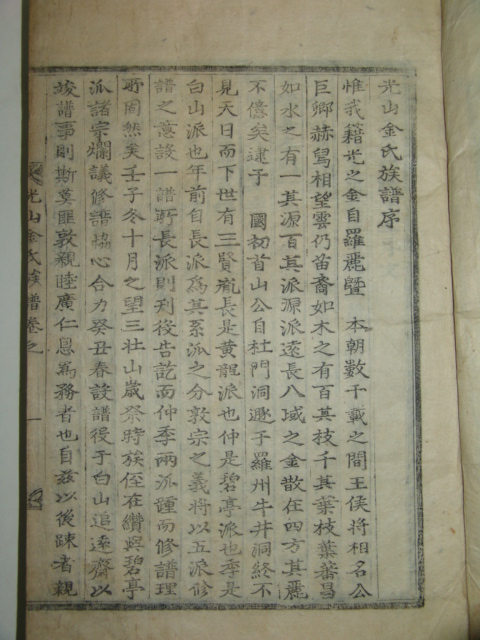 光山金氏族譜序
惟我籍光之金自羅麗曁 本朝數千載之間王侯將相名公
巨卿赫舃相望雲仍苗裔如木之有百其技千其葉枝葉蕃昌
如水之有一其源百其派源派遠長八域之金散在四方其麗
不億矣逮于 國初首山公自杜門洞遯于羅州牛井洞終不
見天日而下世有三賢胤長是黄龍派也仲是碧亭派也季是
白山派也年前自長派為其系派之分敦宗之義将以五派修
譜之意設一譜所長派則刋役告訖而仲季兩派踵而修譜理
所固然矣壬子冬十月之望三壮山歲祭時族侄在纘與碧亭
派諸宗爛議修譜協心合力癸丑春設譜役于白山追遠齋以
竣譜事則斯莫匪敦親睦廣仁恩為務者也自玆以後踈者親
光山金氏族譜卷之 一